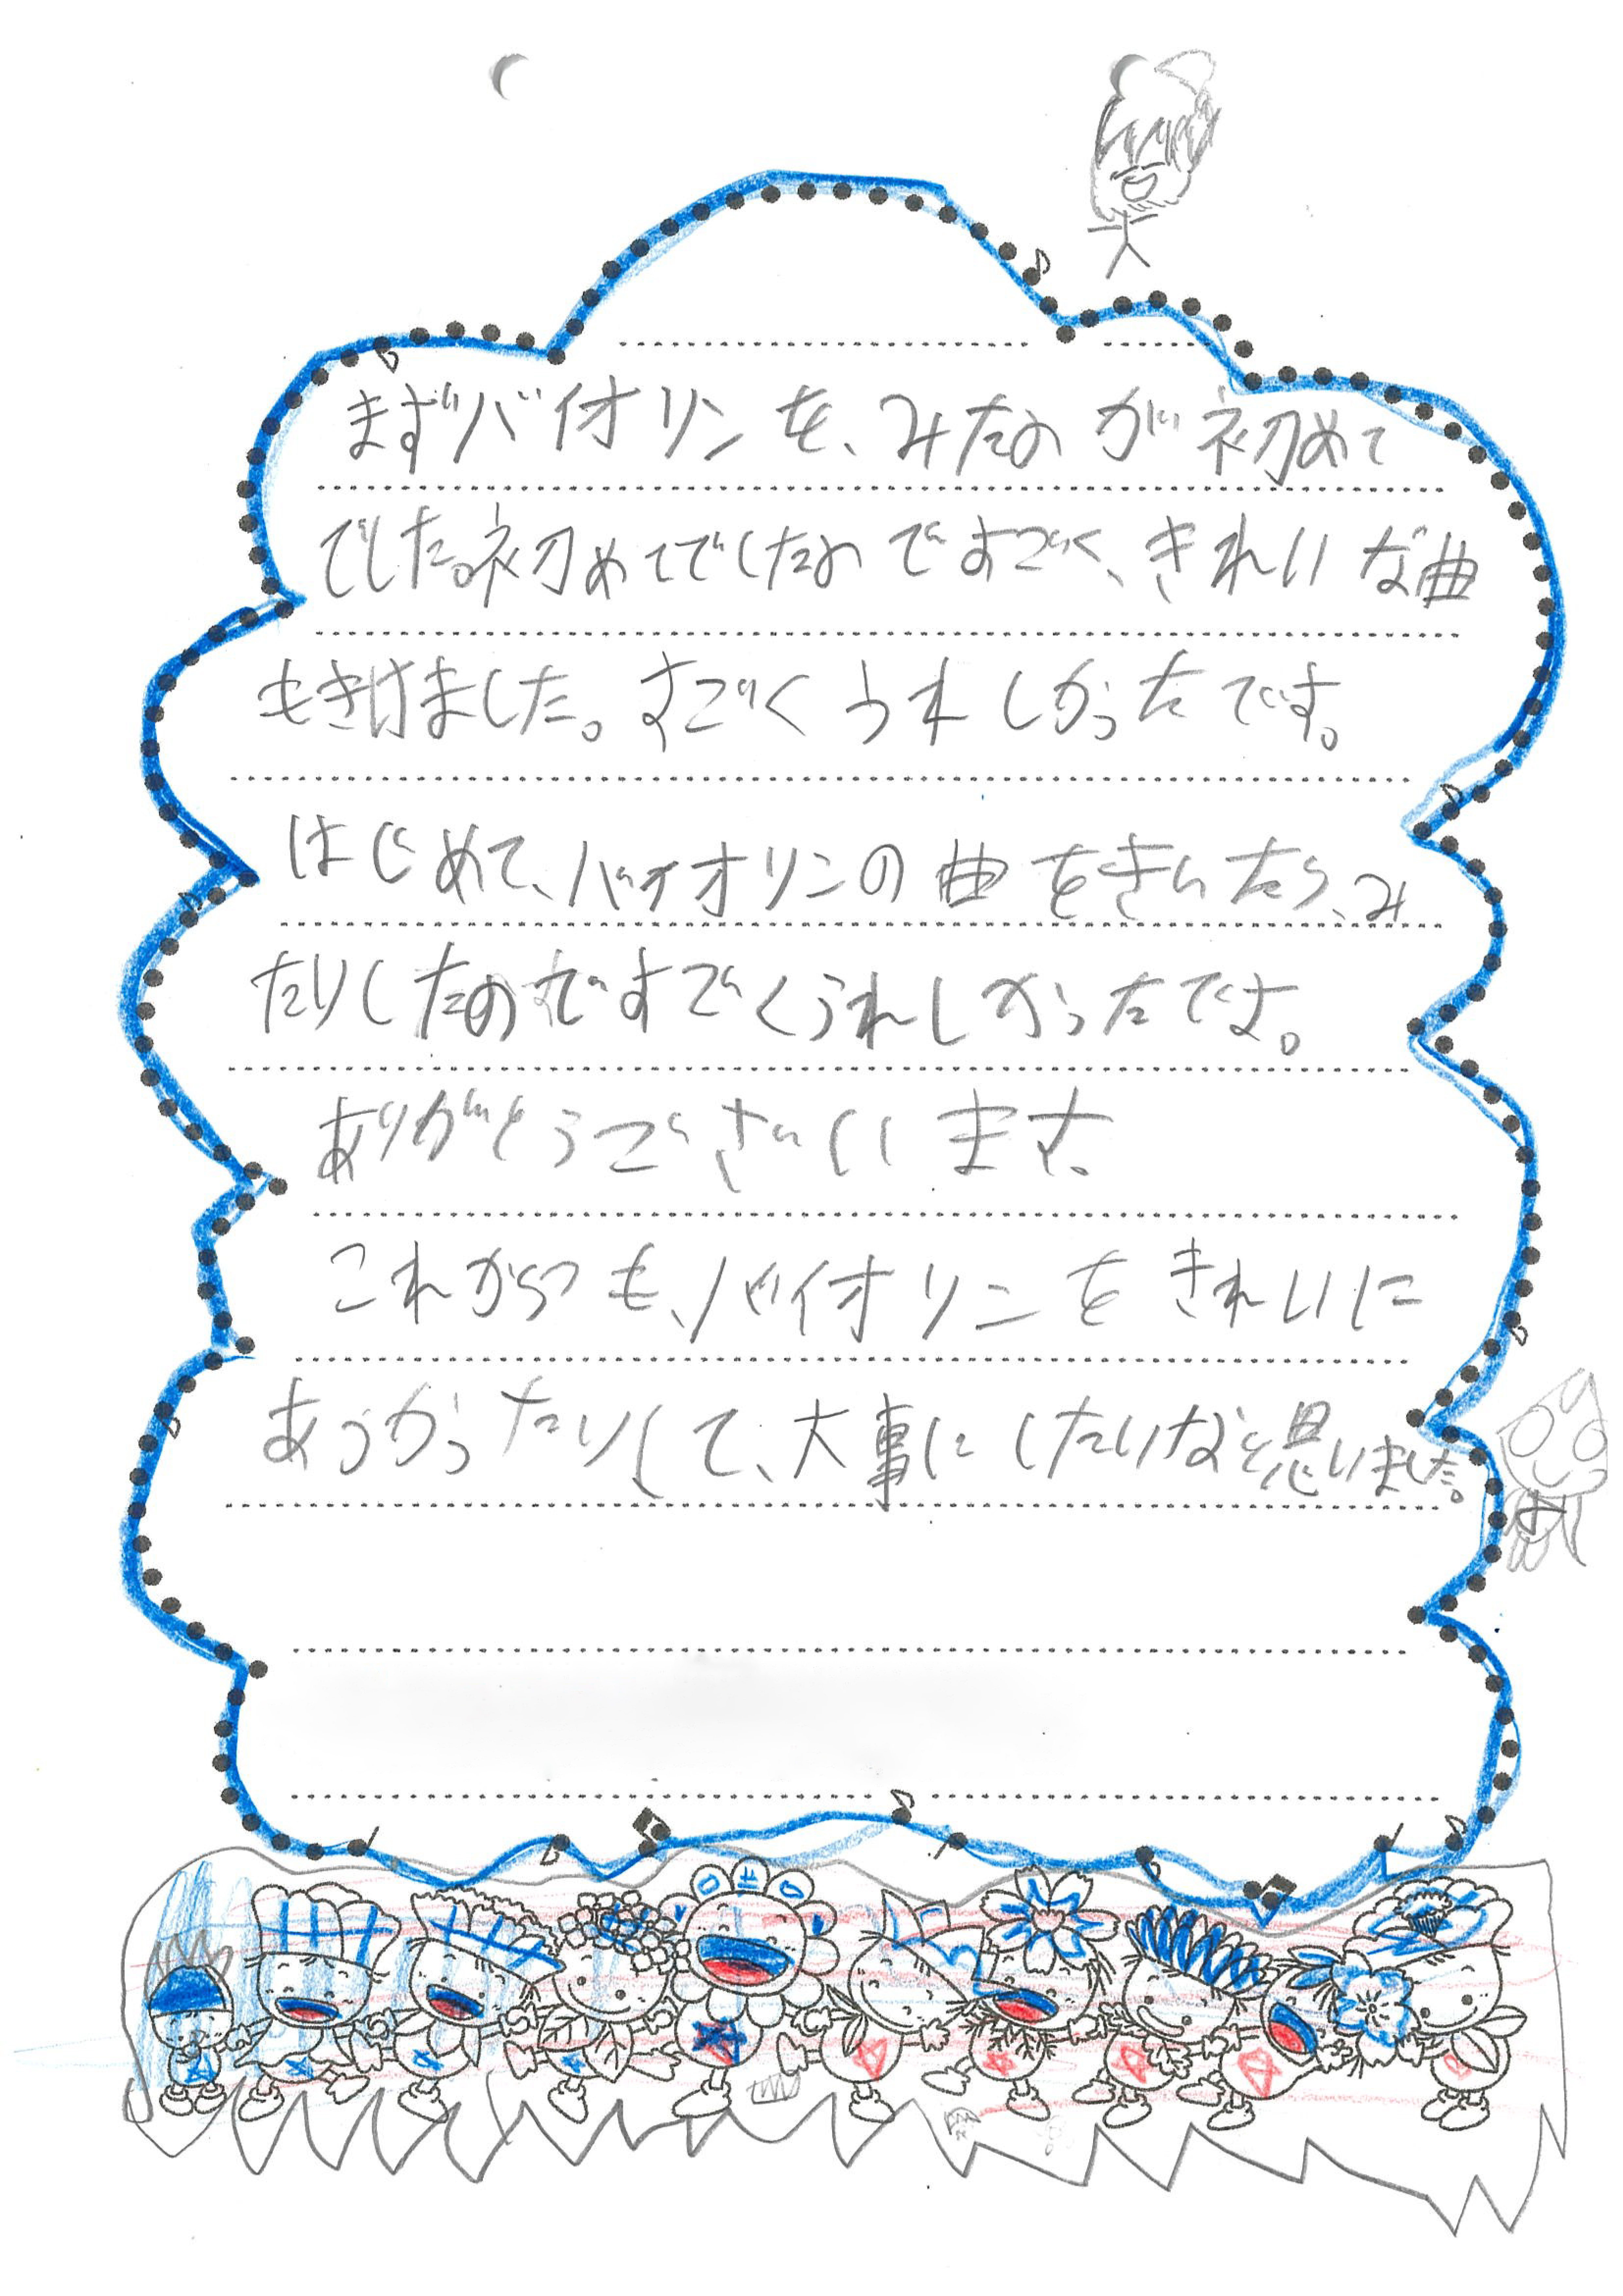 まずバイオリンを、みたのが初めて
でした。初めてでしたのですごく、きれいな曲
もきけました。すごくうれしかったです。
はじめて、バイオリンの曲をきいたら、み
たりしたのですごくうれしかったです。
ありがとうございます。
これからつも、バイオリンをきれいに
あつかったりして、大事にしたいなと思いました。